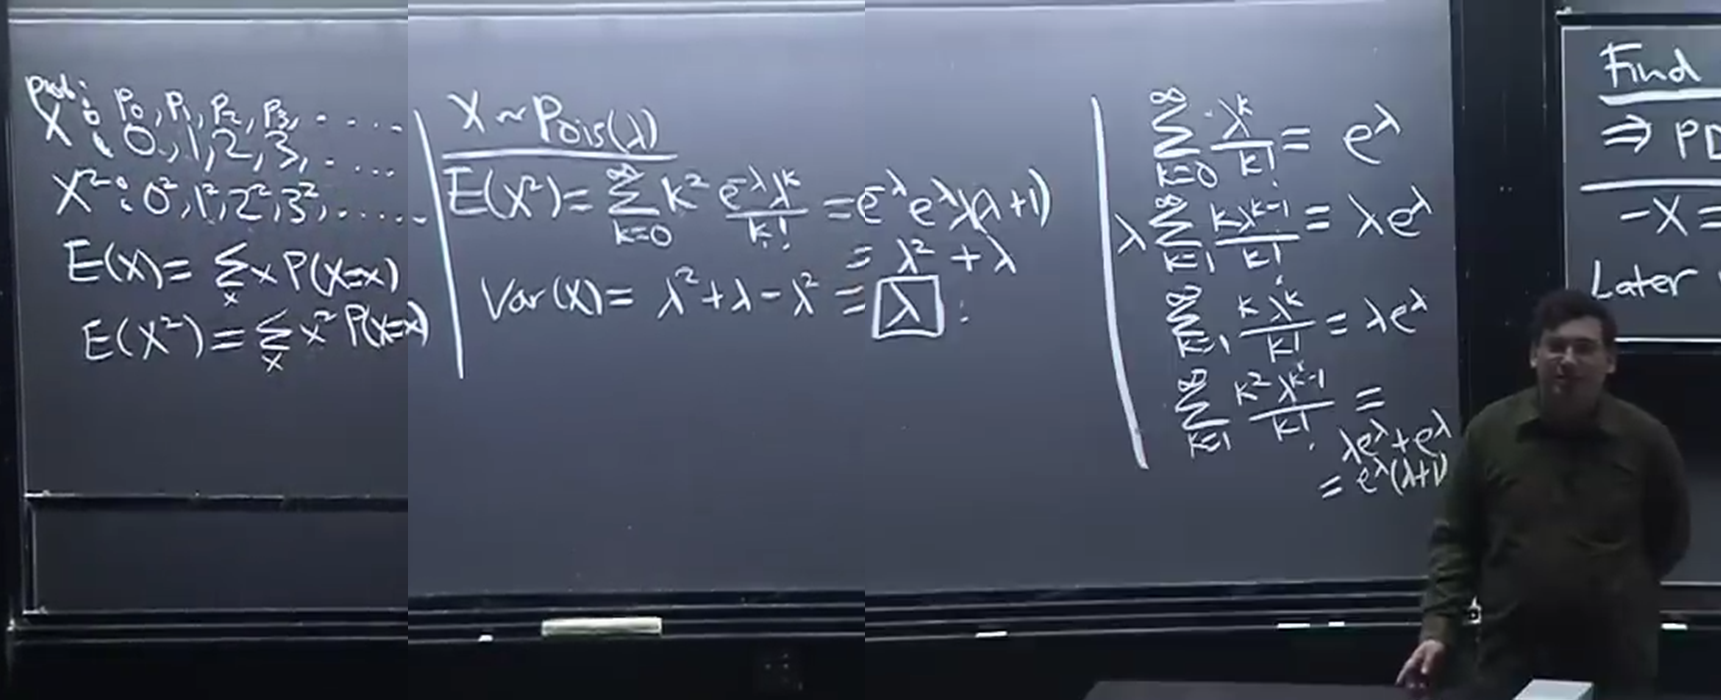 prob: p₀, p₁, p₂, p₃, .....
X: 0, 1, 2, 3, .....
X²: 0², 1², 2², 3², .....
E(X) = Σ_x x P(X=x)
E(X²) = Σ_x x² P(X=x)
X ~ Pois(λ)
E(X²) = Σ_{k=0}^∞ k² e^{-λ} λ^k / k! = e^{-λ} e^λ λ(λ+1)
= λ² + λ
Var(X) = λ² + λ - λ² = λ
Σ_{k=0}^∞ λ^k / k! = e^λ
λ Σ_{k=1}^∞ k λ^{k-1} / k! = λe^λ
Σ_{k=1}^∞ k λ^k / k! = λe^λ
Σ_{k=1}^∞ k² λ^{k-1} / k! =
λe^λ + e^λ
= e^λ(λ+1)
Find
⇒ PD
-X =
Later